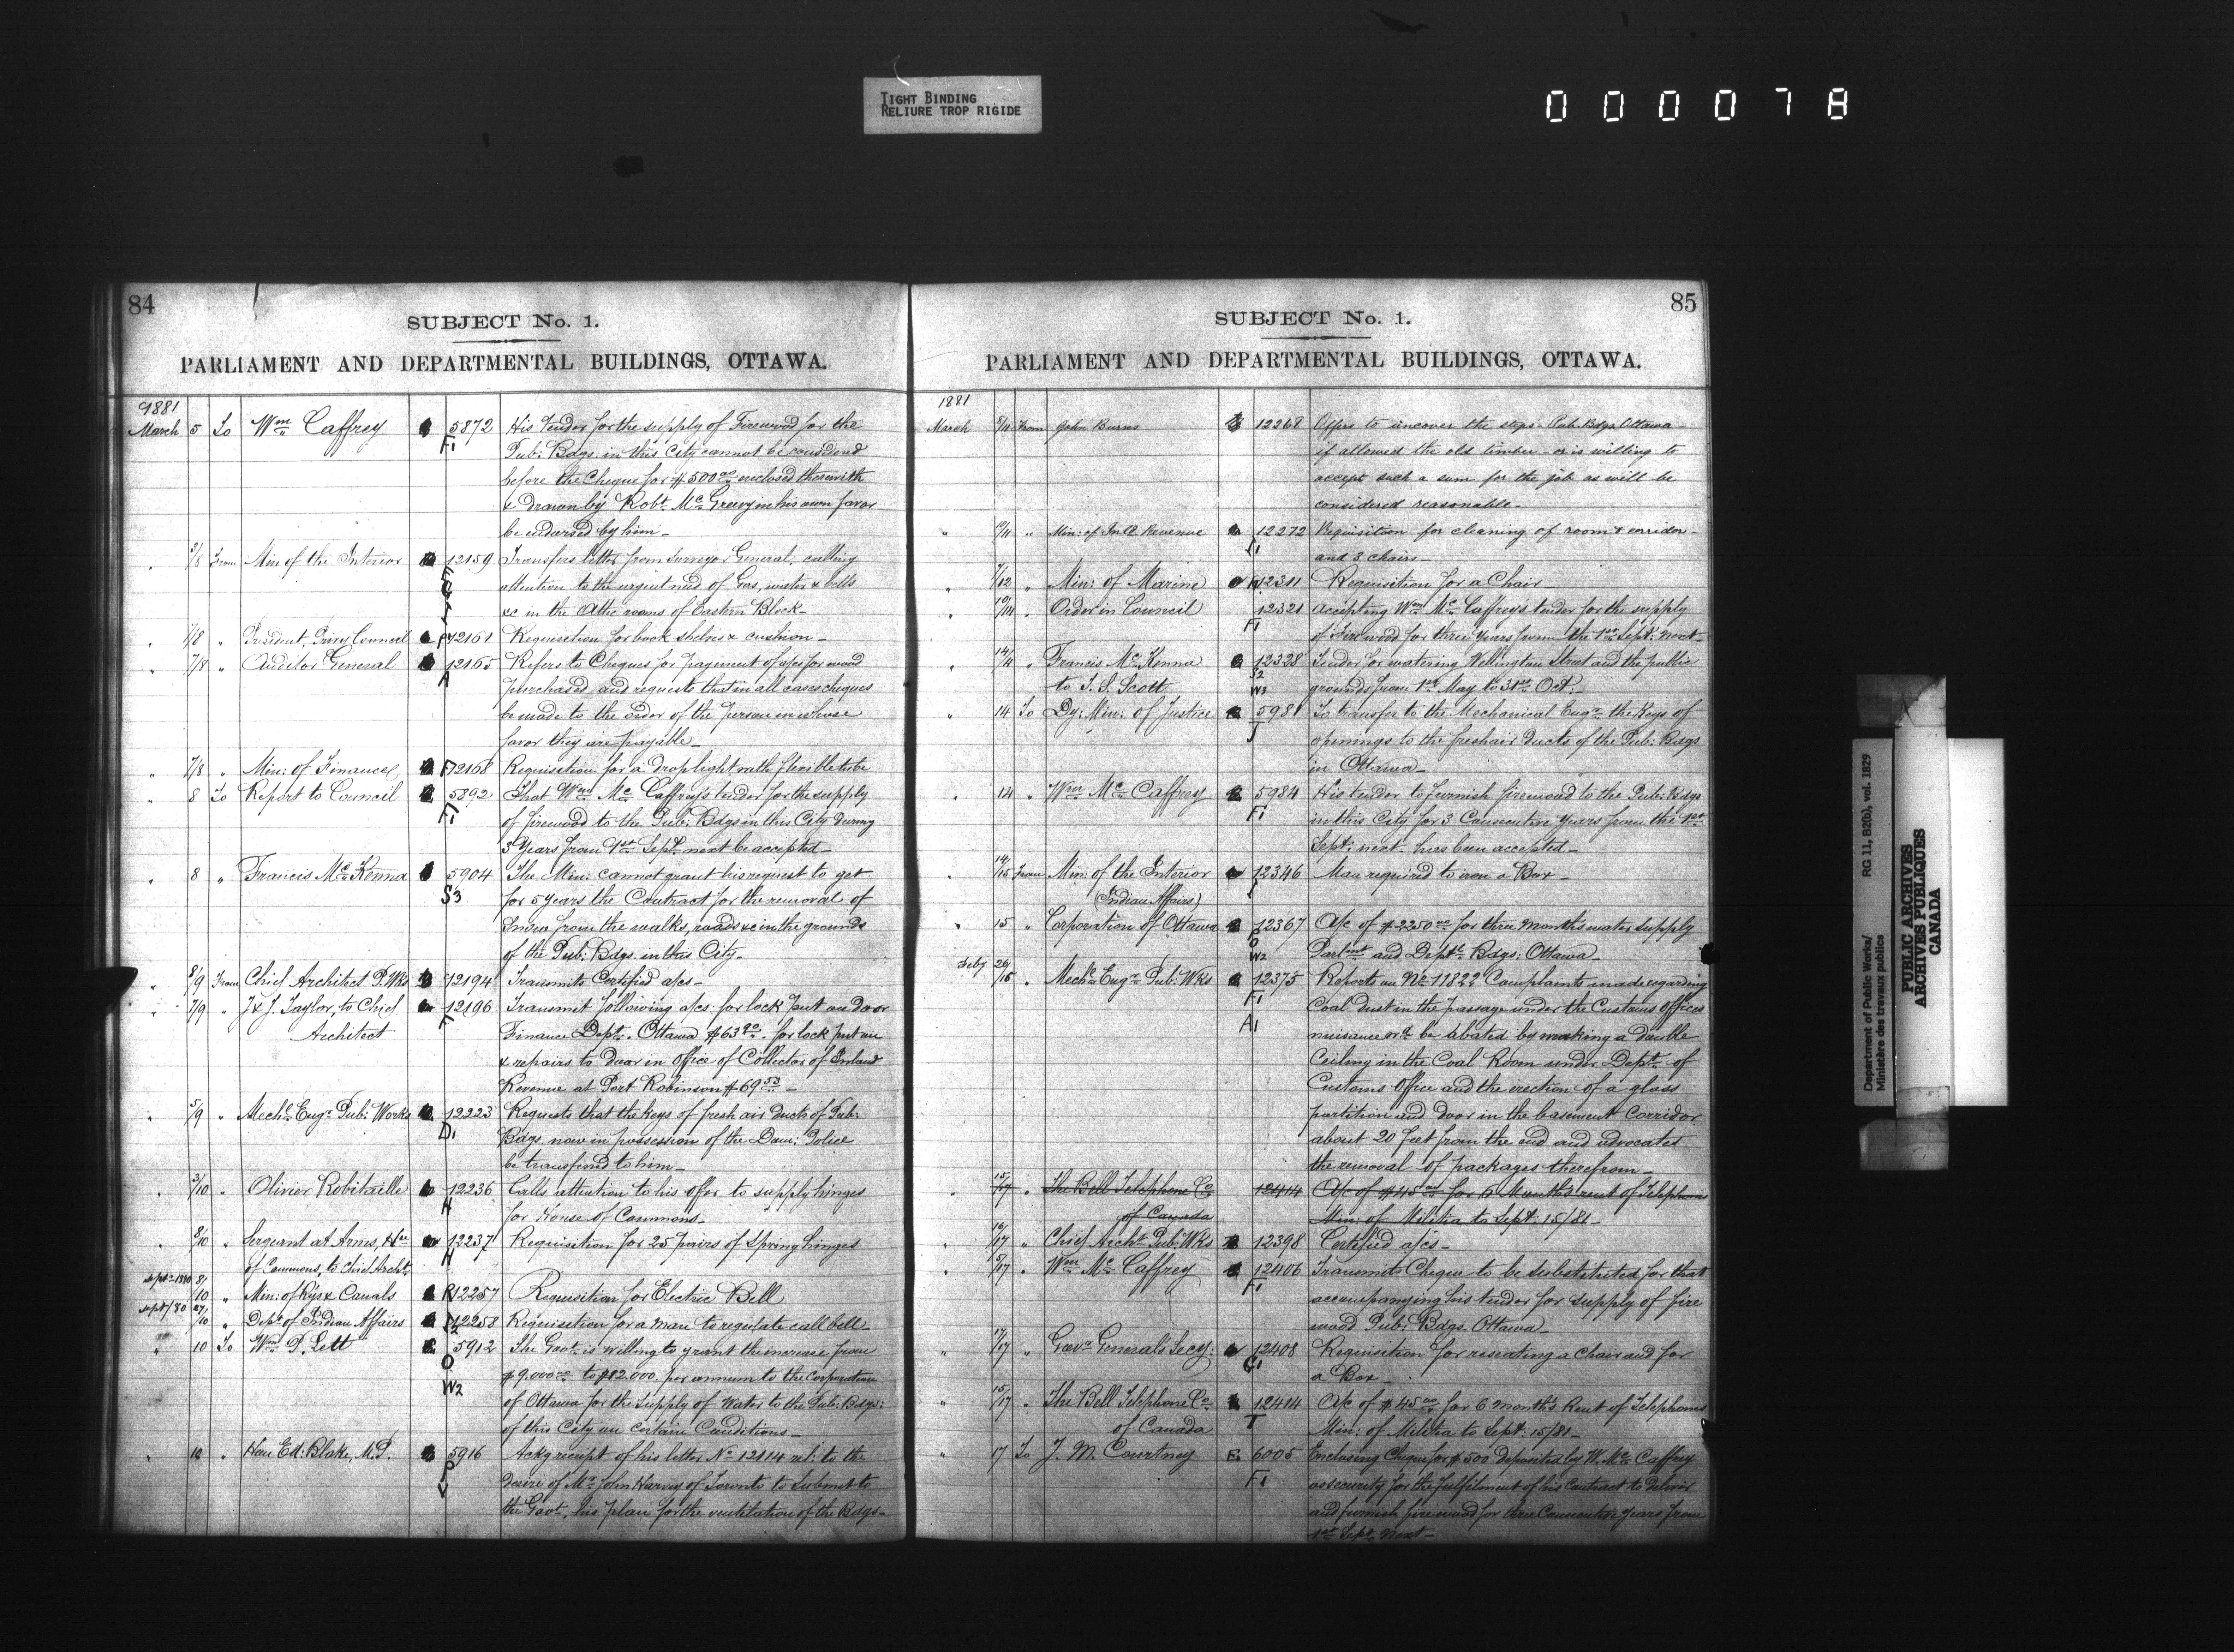 TIGHT BINDING
RELIURE TROP RIGIDE
000078
84
SUBJECT No. 1.
PARLIAMENT AND DEPARTMENTAL BUILDINGS, OTTAWA.
1881
March 5 To Wm Caffrey 5872 His tender for the supply of Firewood for the
F1 Pub: Bdgs. in this City cannot be considered
before the Cheque for $500.00 enclosed therewith
& drawn by Robt McGreevy in his own favor
be endorsed by him_
3/8 From Min of the Interior 12159 Transfers letter from Surveyor General, calling
attention to the urgent need of Gas, water & bells
&c in the Attic rooms of Eastern Block_
7/8 " President, Privy Council 12161 Requisition for book shelves & cushion_
7/8 " Auditor General 12165 Refers to Cheques for payment of a/cs for wood
A purchased and requests that in all cases cheques
be made to the order of the person in whose
favor they are payable_
7/8 " Min: of Finance F 12168 Requisition for a drop light with flexible tube
8 To Report to Council 5892 That Wm McCaffrey's tender for the supply
F1 of firewood to the Pub: Bdgs in this City during
3 Years from 1st Sept next be accepted_
8 " Francis McKenna 5904 The Min: cannot grant his request to get
S3 for 5 years the Contract for the removal of
Snow from the walks, roads &c in the grounds
of the Pub: Bdgs. in this City_
8/9 From Chief Architect P. Wks 12194 Transmits Certified a/cs_
7/9 " J & J. Taylor, to Chief 12196 Transmit following a/cs. for lock put on door
Architect F Finance Dept. Ottawa $63.90. for lock put on
& repairs to door in office of Collector of Inland
Revenue at Port Robinson $69.53_
5/9 " Mechl Engr Pub: Works 12223 Requests that the keys of fresh air ducts of Pub:
D1 Bdgs. now in possession of the Dom: Police
be transferred to him_
3/10 " Olivier Robitaille 12236 Calls attention to his offer to supply hinges
H for House of Commons_
8/10 " Sergeant at Arms, Hse 12237 Requisition for 25 pairs of Spring hinges
of Commons, to Chief Archt H
Sept 1880 8/10 " Min: of Rys & Canals R 12257 Requisition for Electric Bell
Sept/80 27/10 " Dept of Indian Affairs 12258 Requisition for a man to regulate call bell_
" 10 To Wm P. Lett 5912 The Govt is willing to grant the increase from
O $9,000.00 to $12,000. per annum to the Corporation
W2 of Ottawa for the supply of Water to the Pub: Bdgs:
of this City on certain Conditions_
10 " Hon Ed: Blake, M.P. 5916 Ackg receipt of his letter No 12114 rel: to the
P desire of Mr John Harvey of Toronto to submit to
V the Govt, his plan for the ventilation of the Bdgs_
85
SUBJECT No. 1.
PARLIAMENT AND DEPARTMENTAL BUILDINGS, OTTAWA.
1881
March 8/11 From John Burns 12268 Offers to uncover the steps Pub. Bdgs Ottawa
if allowed the old timber - or is willing to
accept such a sum for the job as will be
considered reasonable_
" 10/11 " Min: of Inld Revenue 12272 Requisition for cleaning of room & corridor
I1 and 3 chairs_
7/12 " Min: of Marine 12311 Requisition for a Chair_
10/14 " Order in Council 12321 Accepting Wm McCaffrey's tender for the supply
F1 of Firewood for three years from the 1st Sept: next_
14/14 " Francis McKenna 12328 Tender for watering Wellington Street and the public
to T. S. Scott S2 W3 grounds from 1st May to 31st Oct:
" 14 To Dy: Min: of Justice 5981 To transfer to the Mechanical Engr the Keys of
J openings to the fresh air ducts of the Pub: Bdgs
in Ottawa_
14 " Wm McCaffrey 5984 His tender to furnish firewood to the Pub: Bdgs
F1 in this City for 3 Consecutive Years from the 1st
Sept: next has been accepted_
14/15 From Min: of the Interior 12346 Man required to iron a Box_
(Indian Affairs) I
15 " Corporation of Ottawa 12367 A/c of $2250.00 for three months water supply
O W2 Parlmt and Deptl Bdgs: Ottawa_
Feby 26/16 " Mechl Engr Pub: Wks 12375 Reports on No 11822 Complaints made regarding
F1 Coal dust in the passage under the Customs Offices
A1 nuisance wd be abated by making a double
Ceiling in the Coal Room under Dept of
Customs Office and the erection of a glass
partition and door in the basement Corridor
about 20 feet from the end and advocates
the removal of packages therefrom_
15/17 " The Bell Telephone Co 12414 A/c of $45.00 for 6 Months rent of Telephones
of Canada Min: of Militia to Sept: 15/81_
16/17 " Chief Archt Pub: Wks 12398 Certified a/cs_
5/17 " Wm McCaffrey 12406 Transmits Cheque to be substituted for that
F1 accompanying his tender for supply of fire
wood Pub: Bdgs. Ottawa_
" 17/17 " Govr General's Secy: 12408 Requisition for reseating a Chair and for
G1 a Box_
" 15/17 " The Bell Telephone Co 12414 A/c of $45.00 for 6 months Rent of Telephones
of Canada T Min: of Militia to Sept: 15/81_
" 17 To J. M. Courtney 6005 Enclosing Cheque for $500 deposited by W. McCaffrey
F1 as security for the fulfilment of his Contract to deliver
and furnish fire wood for three Consecutive years from
1st Sept. Next_
Department of Public Works/ RG 11, B2(b), vol. 1829
Ministère des travaux publics
PUBLIC ARCHIVES
ARCHIVES PUBLIQUES
CANADA